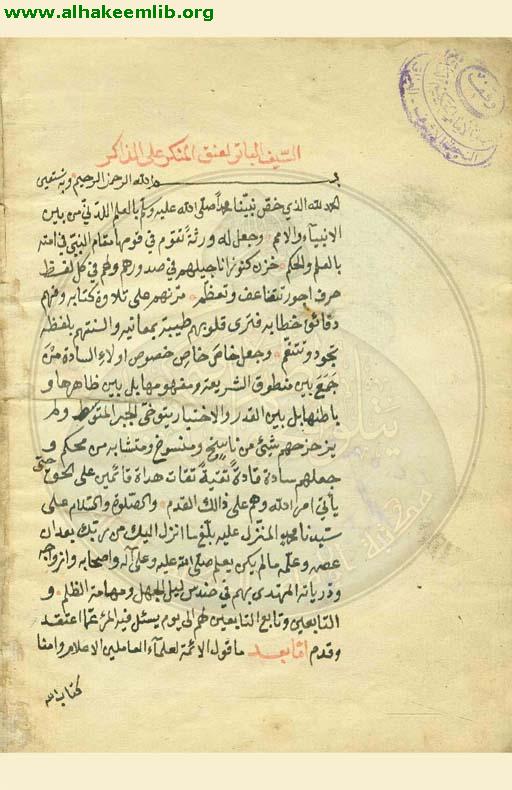 www.alhakeemlib.org
السيف الباتر لعنق المنكر على الذاكر
بسم الله الرحمن الرحيم وبه نستعين
الحمد لله الذي خص نبينا محمدا صلى الله عليه وسلم بالعلم اللدني من بين
الانبياء والامم وجعل له ورثة تقوم في قومها مقام النبي في امته
بالعلم والحكم خزن كنوز اناجيلهم في صدورهم ولهم في كل لفظ
حرف اجور تتضاعف وتعظم مرنهم على تلاوة كتابه وفهم
دقائق خطابه فترى قلوبهم طيبة بمعانيه والسنتهم بلفظه
تجود وتنتقم وجعل خاص خاص خصوص اولاء السادة من
جمع بين منطوق الشريعة ومفهومها بل بين ظاهرها و
باطنها بل بين القدر والاختيار يتوخى الجبر المتوسط ولم
يزحزحهم شيئ من ناسخ ومنسوخ ومتشابه من محكم و
جعلهم سادة قادة نقية ثقات هداة قائمين على الحق حتى
يأتي امر الله وهم على ذالك القدم والصلوة والسلام على
سيدنا محمد المنزل عليه بلغ ما انزل اليك من ربك بعد ان
عصمه وعلمه مالم يكن يعلم صلى الله عليه وعلى آله واصحابه وازواجه
وذرياته المهتدى بهم في حندس ليل الجهل ومهامه الظلم و
التابعين وتابع التابعين لهم الى يوم يسئل فيه المرء عما اعتقد
وقدم اما بعد ما قول الائمة العلماء العاملين الاعلام وامنا
كتاب الله